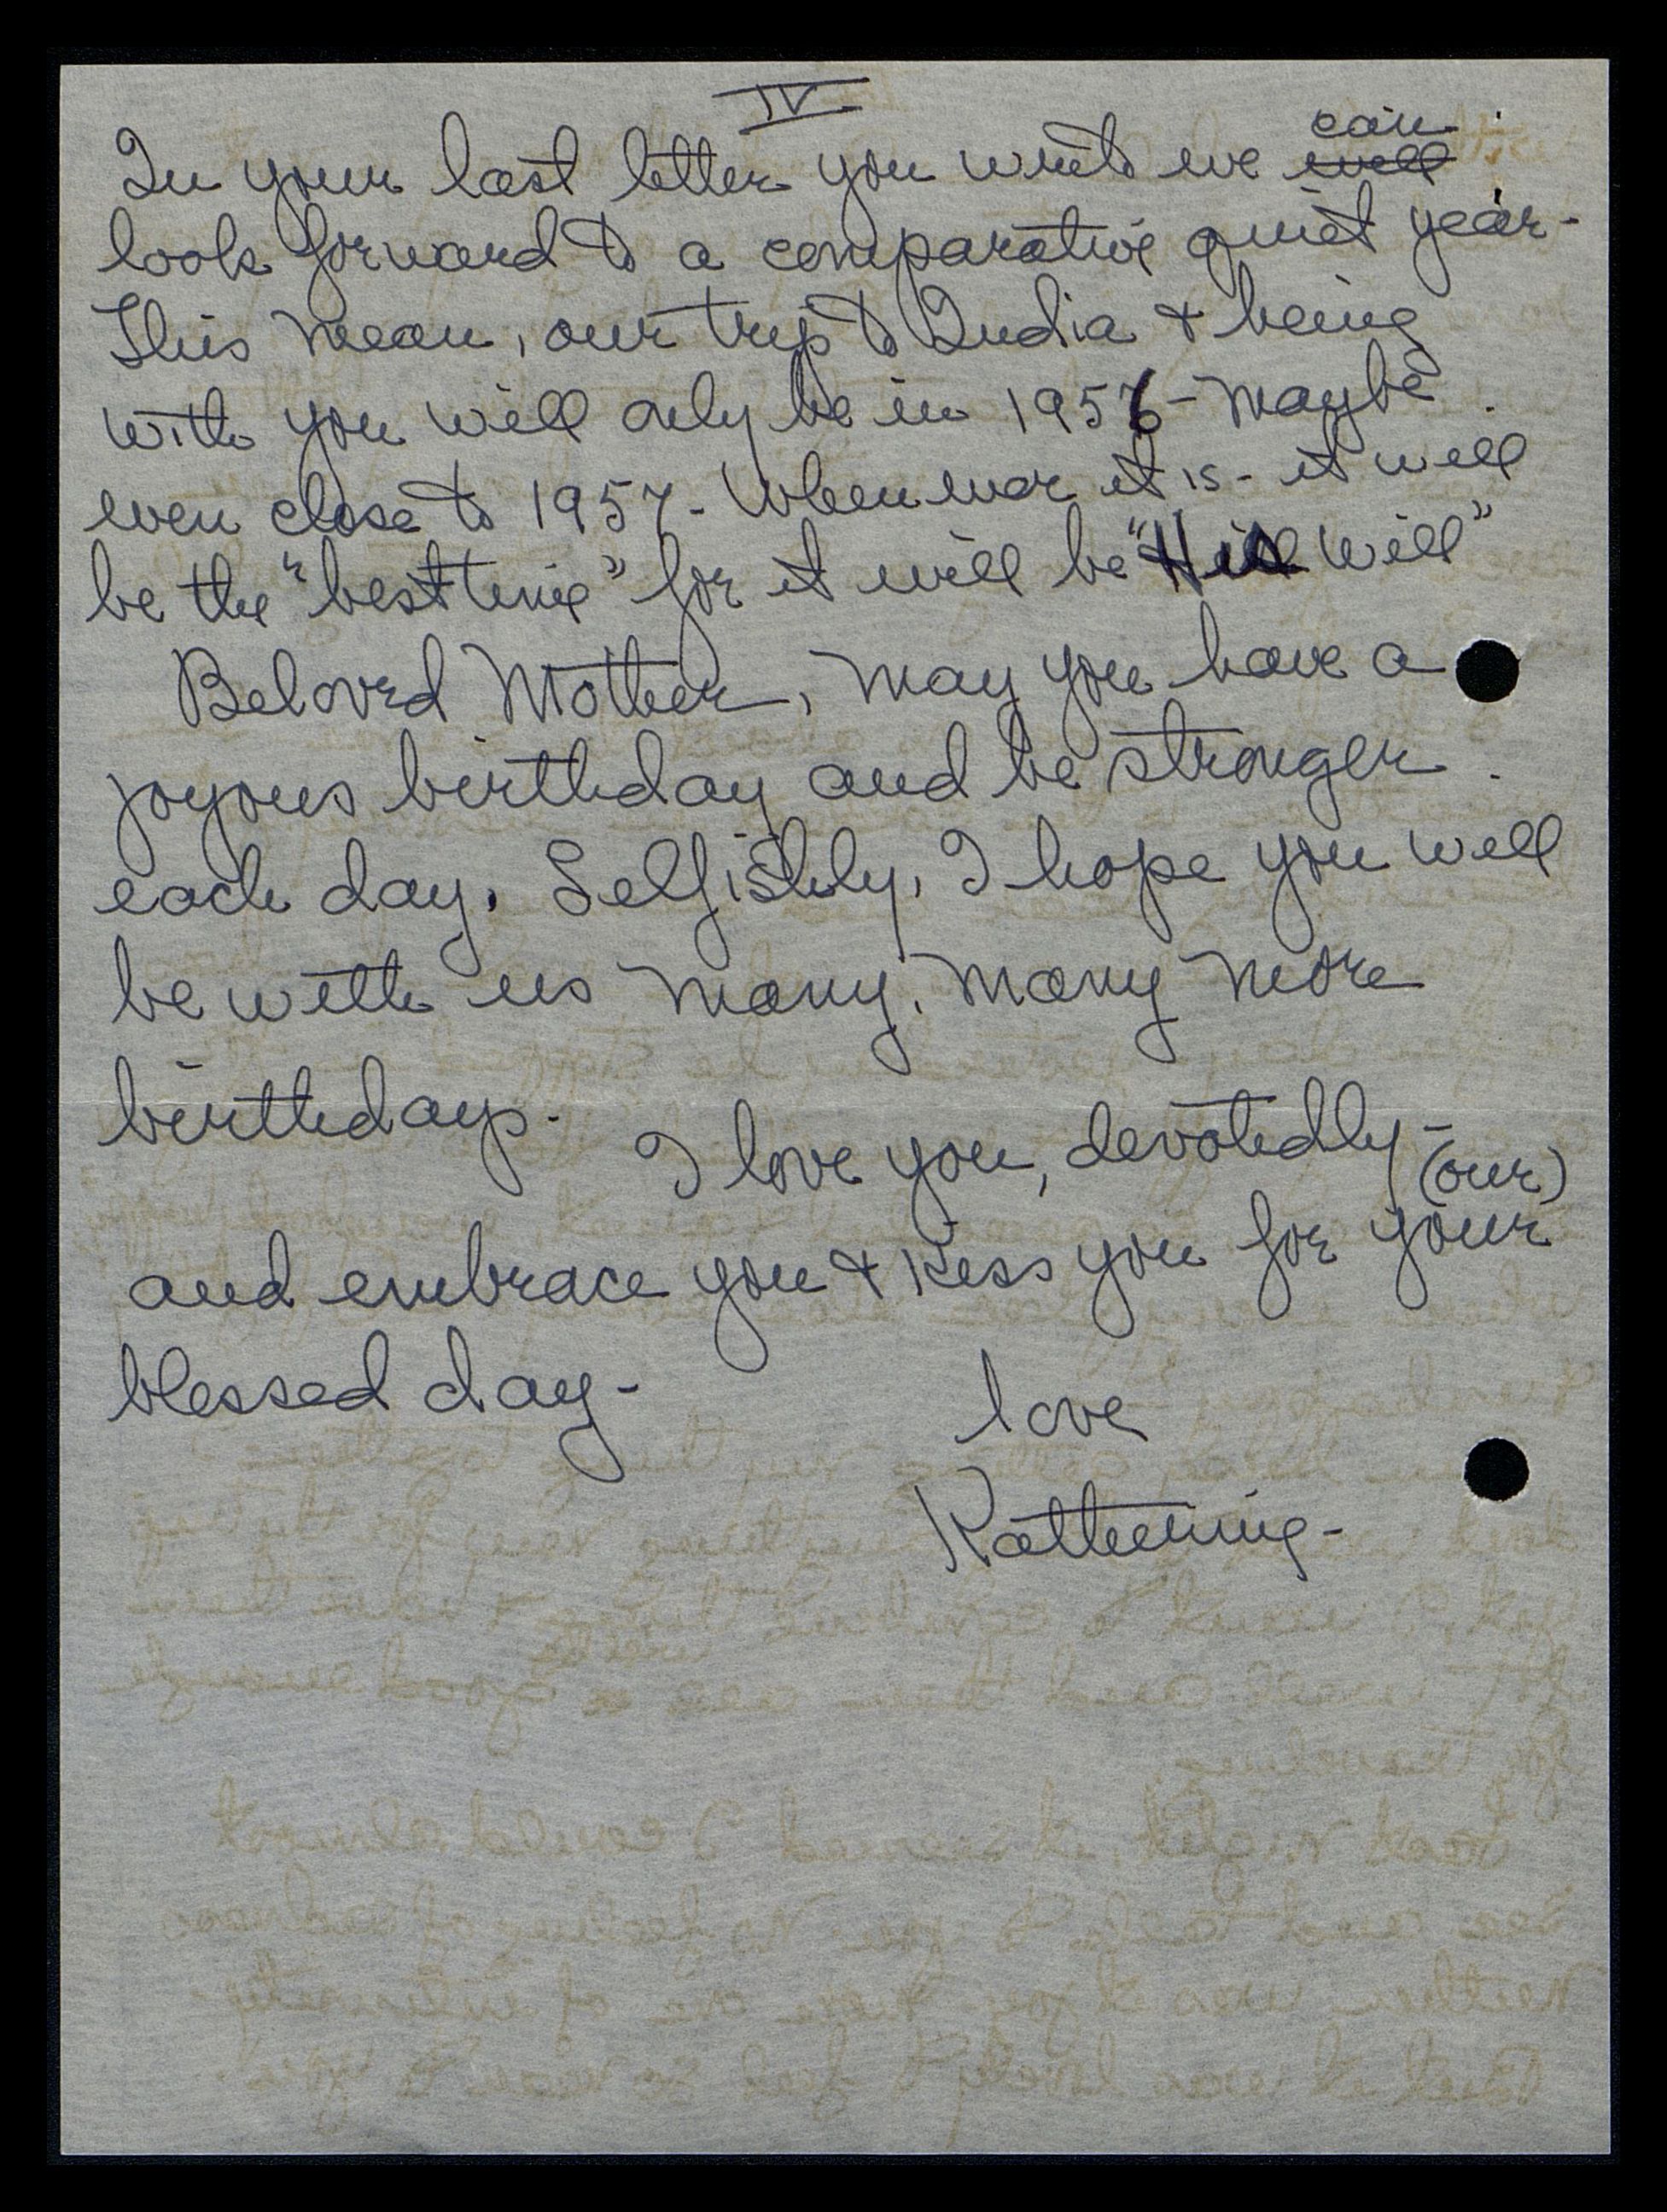 IV
In your last letter you write we ~~will~~ can
look forward to a comparative quiet year-
This mean, our trip to India & being
with you will only be in 1956 - maybe
even close to 1957. Whenever it is - it will
be the "best time" for it will be "His Will"
Beloved Mother, may you have a
joyous birthday and be stronger
each day. Selfishly, I hope you will
be with us many, many more
birthdays.
I love you, devotedly-
and embrace you & kiss you for your (our)
blessed day-
love